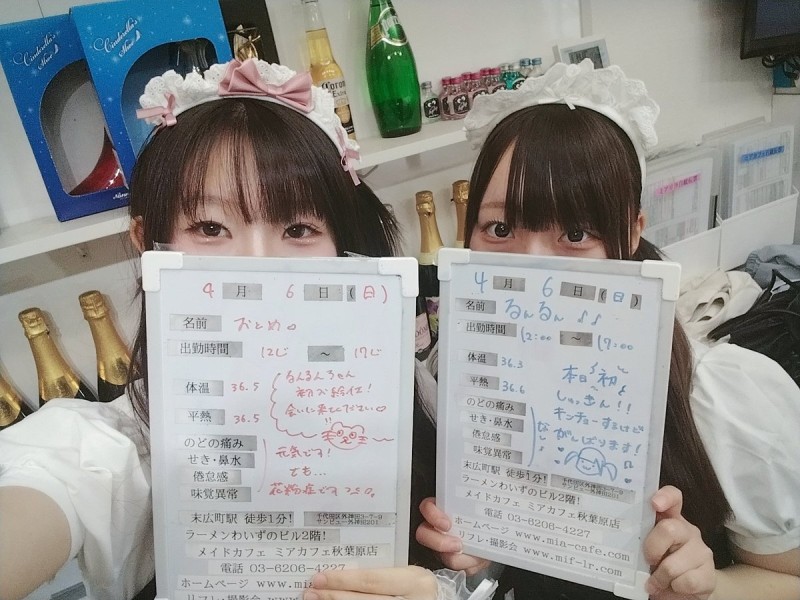 Cinderella's
Mine♪
Cinderella's
Mine♪
Corona
Extra
4月 6日(日)
名前 おとめ。
出勤時間 12じ ～ 17じ
体温 36.5
平熱 36.5
るんるんちゃん
初お給仕！
会いに来てください♡
のどの痛み
せき・鼻水
倦怠感
味覚異常
元気です！
でも…
花粉症です つらい。
末広町駅 徒歩1分！
千代田区外神田3-7-9
サンビュー外神田201
ラーメンわいずのビル2階！
メイドカフェ ミアカフェ秋葉原店
電話 03-6206-4227
ホームページ www.mia
リフレ・撮影会 www.
4月 6日(日)
名前 るんるん♪♪
出勤時間 12:00 ～ 17:00
体温 36.3
平熱 36.6
本日初
しゅっきん！！
キンチョーするけど
がんばります！
のどの痛み
せき・鼻水
倦怠感
味覚異常
ない
末広町駅 徒歩1分！
千代田区外神田3-7-9
サンビュー外神田201
ラーメンわいずのビル2階！
メイドカフェ ミアカフェ秋葉原店
電話 03-6206-4227
ホームページ www.mia-cafe.com
リフレ・撮影会 www.mif-lr.com